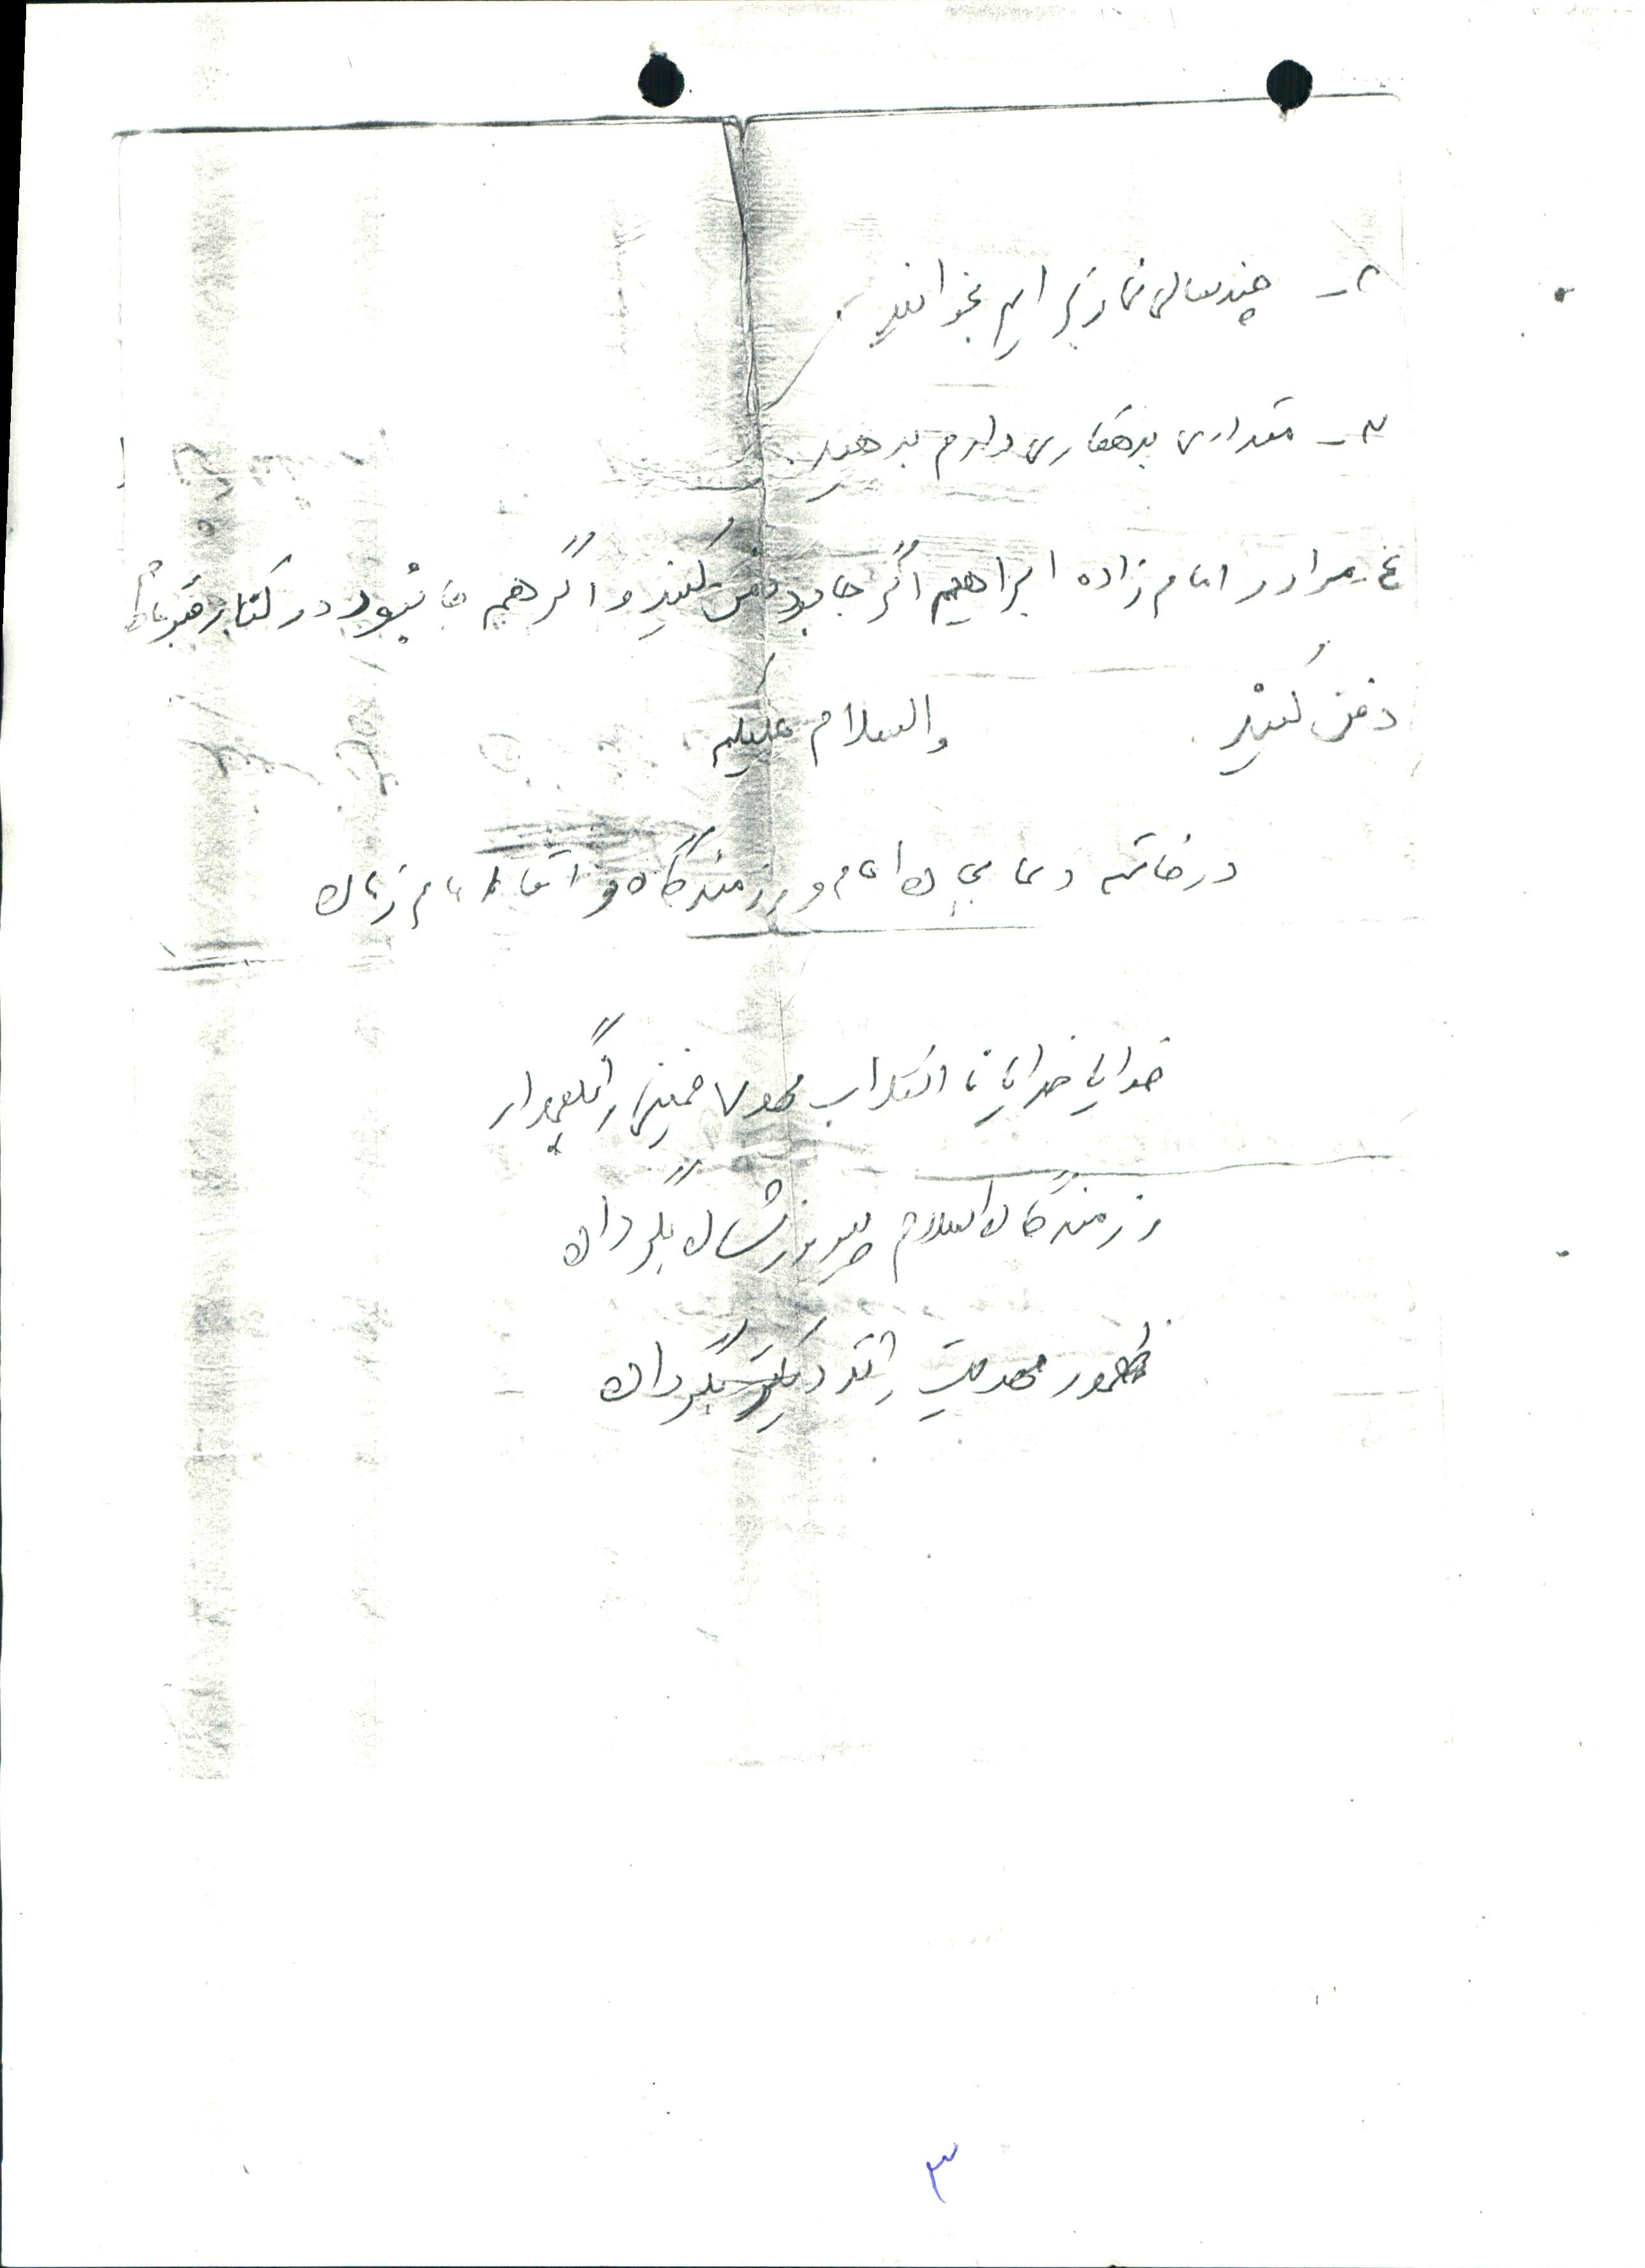 ۲- چند سالی نماز برایم بخوانید
۳- مقداری بدهکاری دارم بدهید.
۴- مرا در امام زاده ابراهیم اگر جا بود دفن کنید و اگر هم جا نبود در کنار قبر
دفن کنید. والسلام علیکم
در خاتمه دعا بجان امام و رزمندگان و آقا امام زمان
خدایا خدایا تا انقلاب مهدی خمینی را نگهدار
رزمندگان اسلام پیروزشان بگردان
ظهور مهدیت را نزدیکتر بگردان
۳